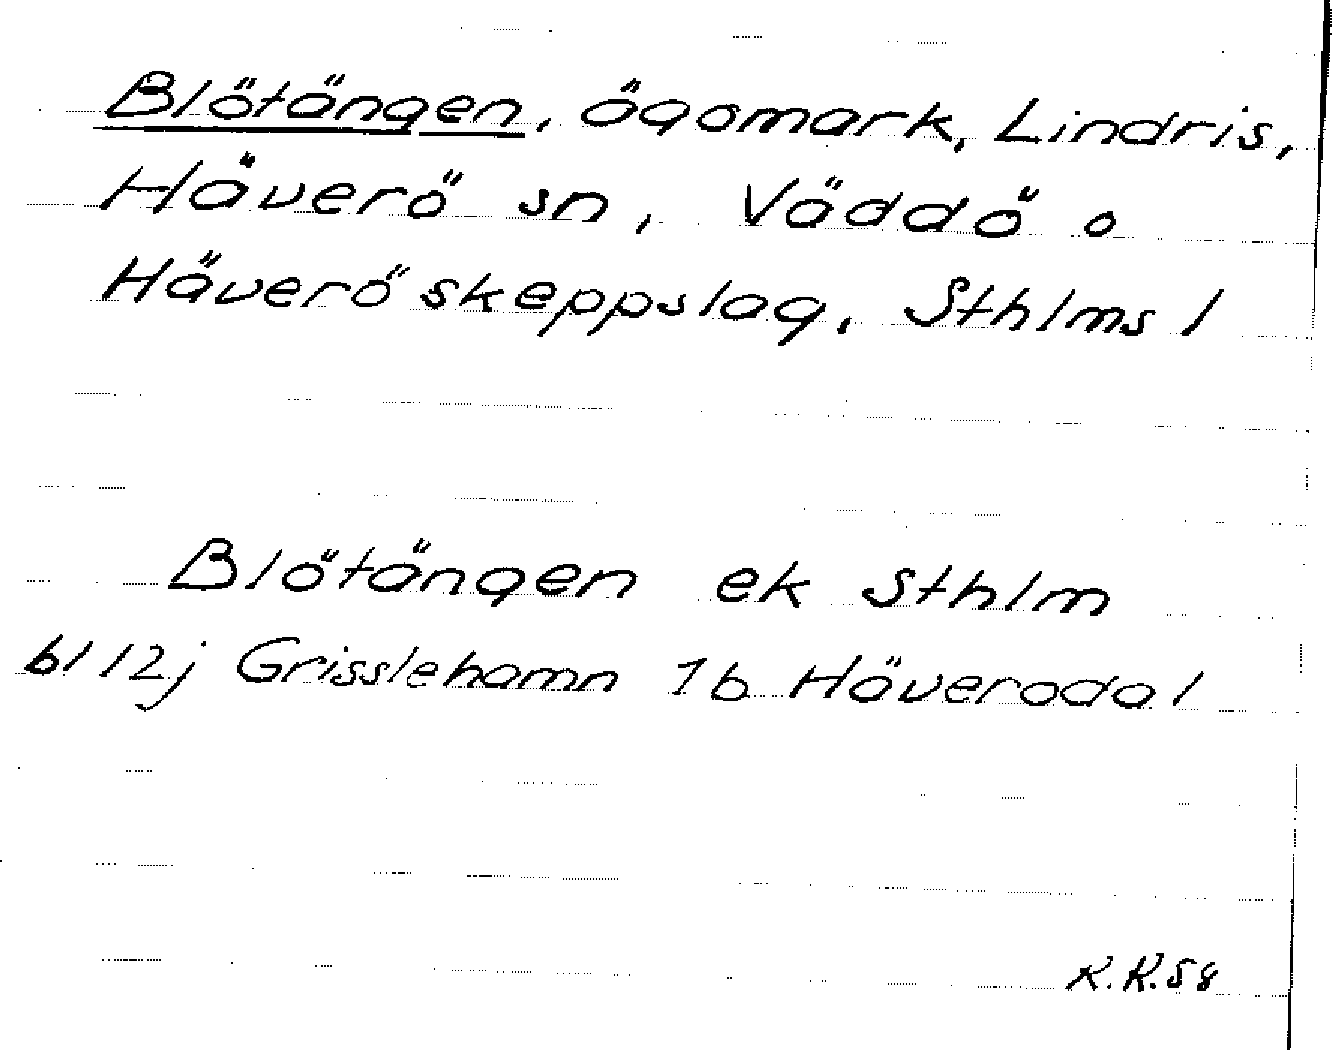 Blötängen, ägomark, Lindris,
Häverö sn, Väddö o
Häverö skeppslag, Sthlms l
Blötängen ek Sthlm
bl 12j Grisslehamn 1b Häverodal
R.R.58